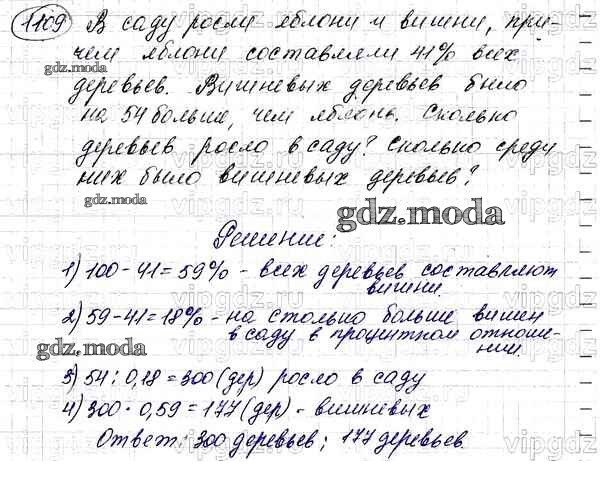 1109 В саду росли яблони и вишни, при-
чем яблони составляли 41% всех
gdz.moda
деревьев. Вишневых деревьев было
на 54 больше, чем яблонь. Сколько
деревьев росло в саду? Сколько среди
них было вишневых деревьев?
gdz.moda
gdz.moda
Решение:
1) 100 - 41 = 59% - всех деревьев составляют
вишни.
2) 59 - 41 = 18% - на столько больше вишен
в саду в процентном отноше-
нии.
gdz.moda
3) 54 : 0,18 = 300 (дер) росло в саду
4) 300 · 0,59 = 177 (дер) - вишневых
Ответ: 300 деревьев; 177 деревьев
gdz.moda